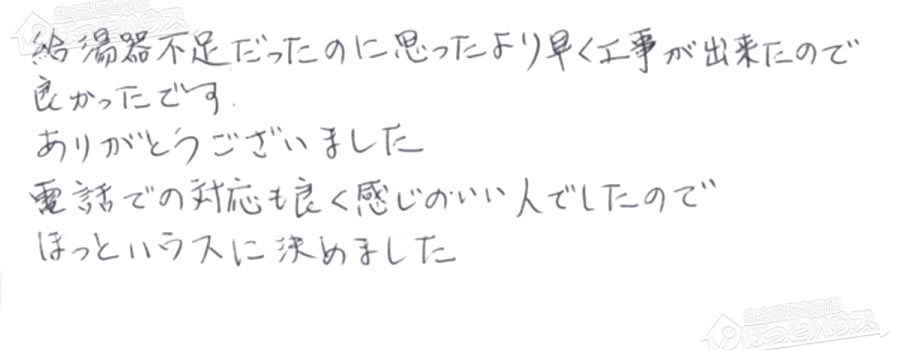 給湯器不足だったのに思ったより早く工事が出来たので
良かったです.
ありがとうございました
電話での対応も良く感じのいい人でしたので
ほっとハウスに決めました
ほっとハウス
ほっとハウス